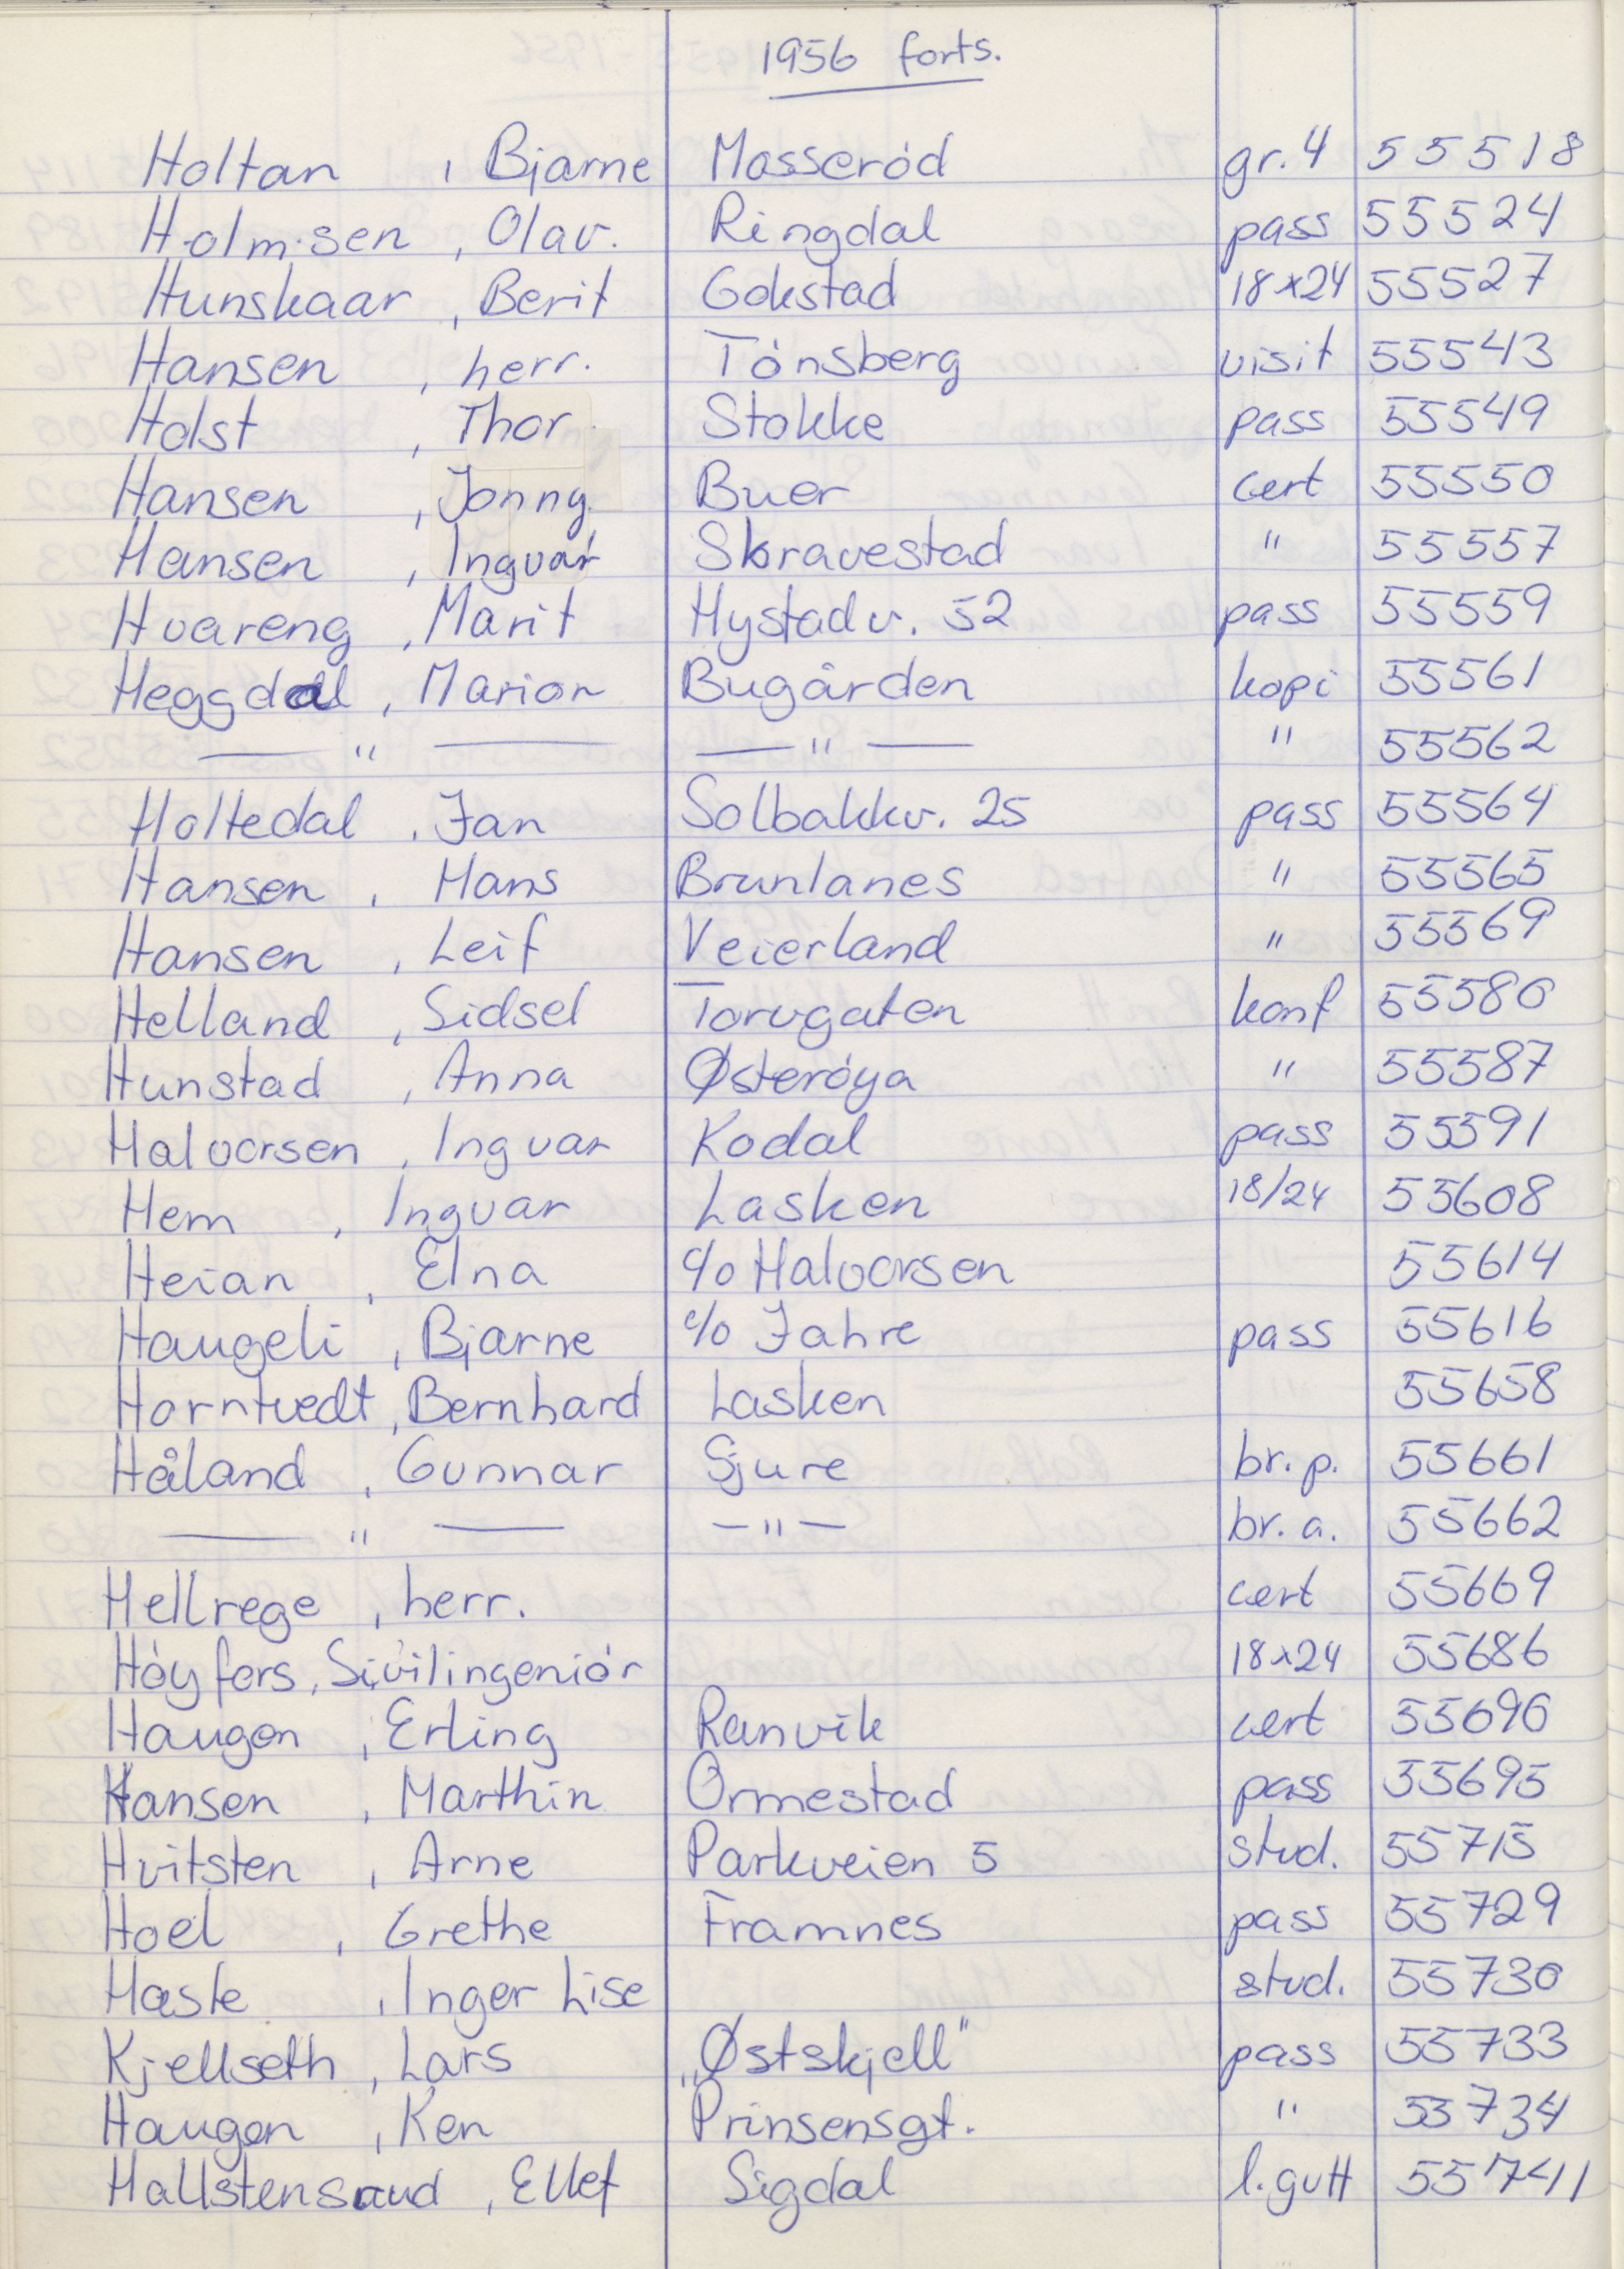 1956 forts.
Holtan , Bjarne Masseród gr. 4 55518
Holmsen , Olav. Ringdal pass 55524
Hunskaar , Berit Gokstad 18x24 55527
Hansen , herr. Tónsberg visit 55543
Holst , Thor Stokke pass 55549
Hansen , Jonny Buer cert 55550
Hansen , Ingvar Skravestad " 55557
Hvareng , Marit Hystadv. 52 pass 55559
Heggdal , Marion Bugården kopi 55561
— " — — " — " 55562
Holtedal , Jan Solbakkv. 25 pass 55564
Hansen , Hans Brunlanes " 55565
Hansen , Leif Veierland " 55569
Helland , Sidsel Torvgaten konf 55580
Hunstad , Anna Østeróya " 55587
Halvorsen , Ingvar Kodal pass 55591
Hem , Ingvar Lasken 18/24 55608
Heian , Elna c/o Halvorsen 55614
Haugeli , Bjarne c/o Jahre pass 55616
Horntvedt , Bernhard Lasken 55658
Håland , Gunnar Gjure br. p. 55661
— " — — " — br. a. 55662
Hellrege , herr. cert 55669
Hóyfors , Sivilingeniór 18x24 55686
Haugen , Erling Ranvik cert 55690
Hansen , Marthin Ormestad pass 55695
Hvitsten , Arne Parkveien 5 stud. 55715
Hoel , Grethe Framnes pass 55729
Hasle , Inger Lise stud. 55730
Kjellseth , Lars „Østskjell" pass 55733
Haugen , Ken Prinsensgt. " 55734
Hallstensrud , Ellef Sigdal l. gutt 55741